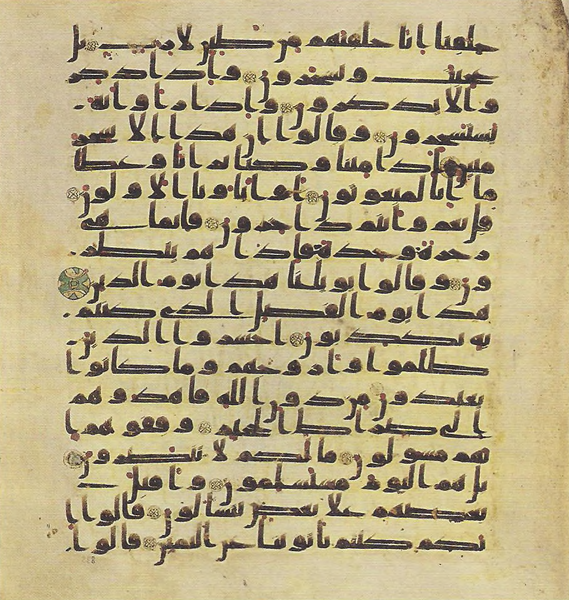 خلقنا انا خلقنهم من طين لازب بل
عجبت ويسخرون واذا ذكر
وا لا يذكرون واذا راوا اية
يستسخرون وقالوا ان هذا الا سحر
مبين اذا متنا وكنا ترابا وعظا
ما انا لمبعوثون او اباونا الاولون
قل نعم وانتم دخرون فانما هي
زجرة وحدة فاذا هم ينظر
ون وقالوا يويلنا هذا يوم الدين
هذا يوم الفصل الذي كنتم
به تكذبون احشروا الذين
ظلموا وازوجهم وما كانوا
يعبدون من دون الله فاهدوهم
الى صرط الجحيم وقفوهم ا
نهم مسولون ما لكم لا تنصرون
بل هم اليوم مستسلمون واقبل
بعضهم على بعض يتسالون قالوا ا
نكم كنتم تاتوننا عن اليمين قالوا ا